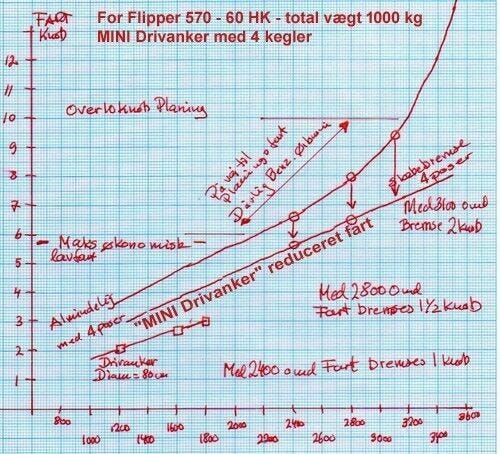 For Flipper 570 - 60 HK - total vægt 1000 kg
MINI Drivanker med 4 kegler
FART
Knob
12
11
10
9
8
7
6
5
4
3
2
1
Overloknob Planing
På vej til
planingsfart
Dårlig Benz. økonomi
Maks økonomisk
lavfart
Skabebremse
4 poser
Med 3100 omd
Bremse 2 knob
Almindelig
med 4 poser
"MINI Drivanker" reduceret fart
Med 2800 Omd
Fart bremses 1 1/2 knob
Drivanker
Diam = 80cm
Med 2400 omd Fart bremses 1 knob
800
1000
1200
1400
1600
1800
2000
2200
2400
2600
2800
3000
3200
3400
3600